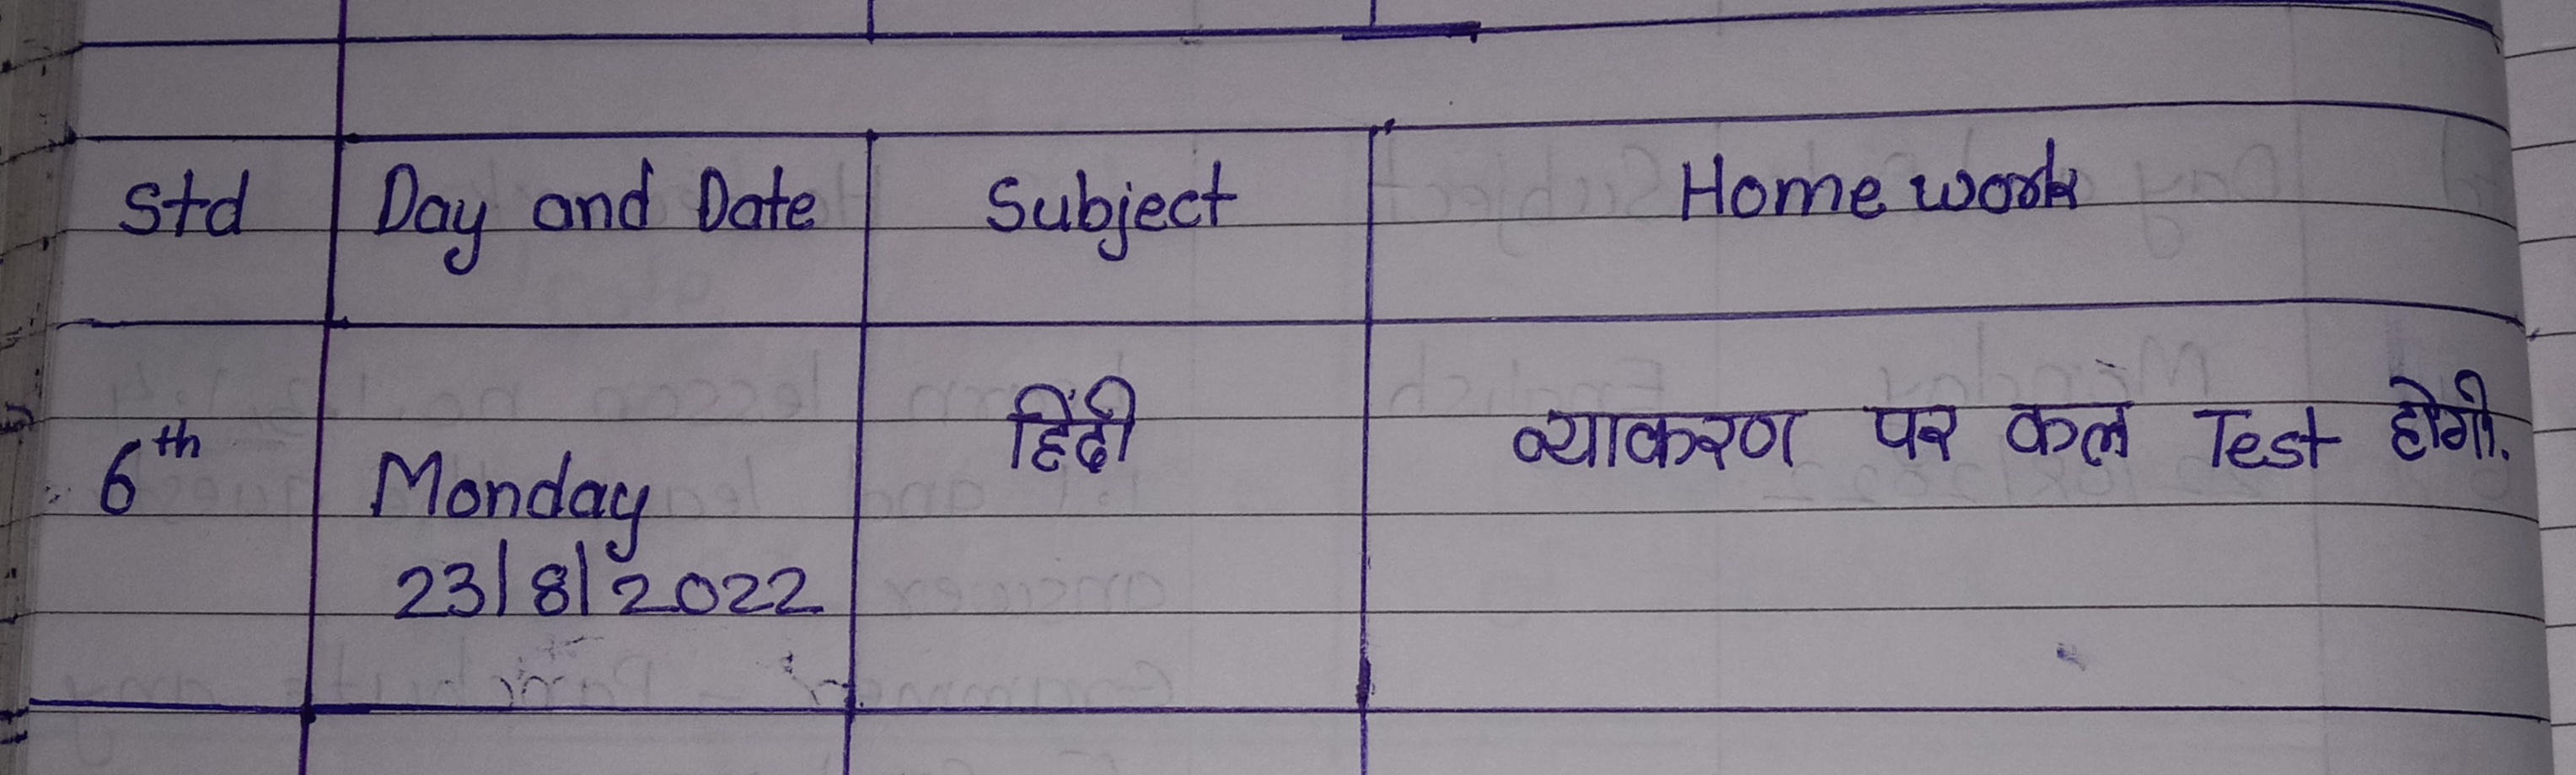 Std Day and Date Subject Home work
6th Monday हिंदी व्याकरण पर कल Test होगी.
23/8/2022